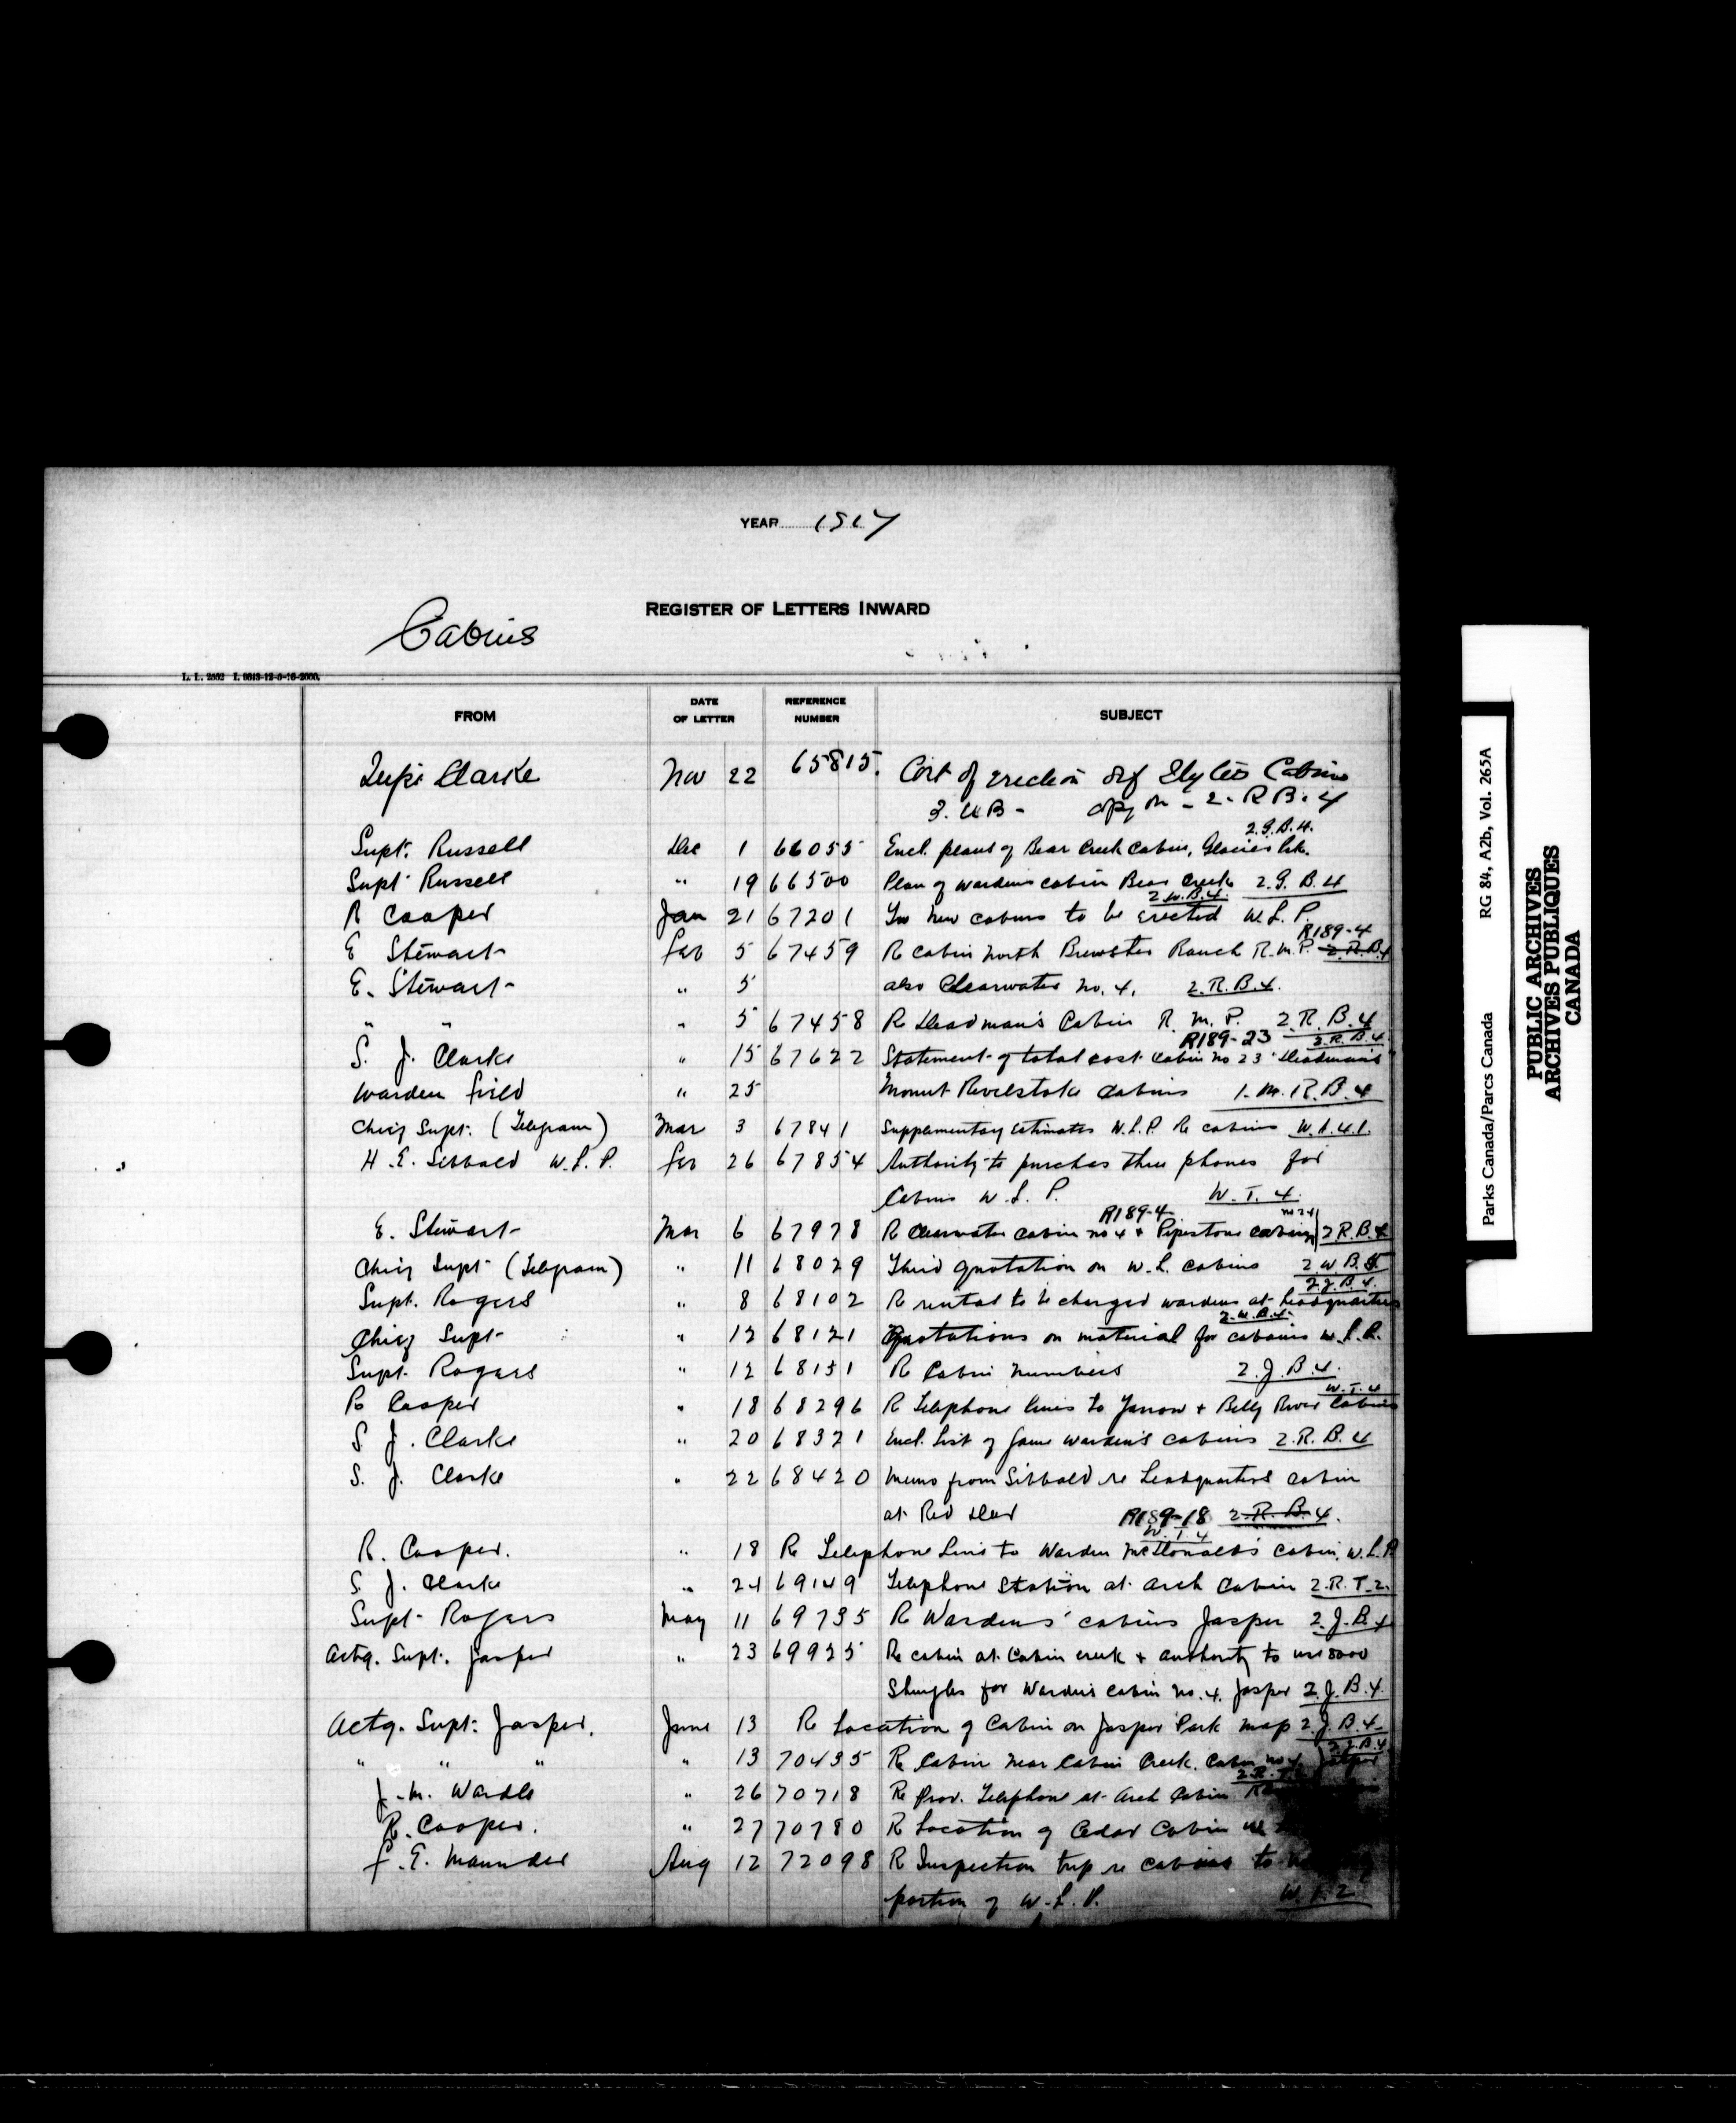 YEAR 1917
REGISTER OF LETTERS INWARD
Cabins
FROM DATE OF LETTER REFERENCE NUMBER SUBJECT
Supt Clarke Nov 22 65815. Cost of erection of Cabins
copy on - 2. R B. 4
2.G.B.4.
Supt. Russell Dec 1 66055 Encl. plans of Bear Creek Cabin, Glacier Pk.
Supt Russell " 19 66500 Plan of wardens cabin Bear Creek 2.G.B.4
2.W.B.4.
R Cooper Jan 21 67201 Two new cabins to be erected W.L.P.
R189-4
E Stewart Feb 5 67459 R cabin north Brewster Ranch R.M.P. 2.R.B.4
E. Stewart " 5 also Clearwater no. 4, 2.R.B.4.
" " " 5 67458 R Deadman's Cabin R.M.P. 2.R.B.4
R189-23 2.R.B.4.
S. J. Clarke " 15 67622 Statement of total cost cabin no 23 "Deadman's"
Warden field " 25 Mount Revelstoke cabins 1.M.R.B.4
Chief Supt. (Telegram) Mar 3 67841 Supplementary estimates W.L.P. Re cabins
H.E. Sibbald W.L.P. Feb 26 67854 Authority to purchas three phones for
Cabins W.L.P. W.T.4.
R189-4 no 24
E. Stewart Mar 6 67978 R Clearwater cabin no 4 + Pipestone cabin 2 R.B.4
Chief Supt (Telegram) " 11 68029 Third quotation on W.L. cabins 2 W B.
2.J.B.4.
Supt. Rogers " 8 68102 R rental to be charged wardens at headquarters
2.W.B.4.
Chief Supt " 12 68121 Quotations on material for cabins W.L.P.
Supt. Rogers " 12 68151 R Cabin numbers 2.J.B.4.
W.T.4
R Cooper " 18 68296 R Telephone lines to Yarrow + Belly River Cabins
S J. Clarke " 20 68321 Encl. List of Game Warden's cabins 2.R.B.4
S. J. Clarke " 22 68420 Memo from Sibbald re Headquarters cabin
at Red Deer R189-18 2.R.B.4.
W.T.4
R. Cooper. " 18 Re Telephone Line to Warden McDonald's cabin, W.L.P
S. J. Clarke " 24 69149 Telephone Station at Arch Cabin 2.R.T.2.
Supt Rogers May 11 69735 R Wardens' cabins Jasper 2.J.B.4
Actg. Supt. Jasper " 23 69925 Re cabin at Cabin creek + authority to use 8000
Shingles for Warden's cabin no. 4. Jasper 2.J.B.4.
Actg. Supt: Jasper. June 13 R Location of Cabin on Jasper Park map 2.J.B.4
2.J.B.4
" " " " 13 70435 Re Cabin near Cabin Creek. Cabin no 4. Jasper
J.M. Wardle " 26 70718 Re Prov. Telephone at Arch Cabin
R. Cooper. " 27 70780 R Location of Cedar Cabin
F.E. Maunder Aug 12 72098 R Inspection trip re cabins to
portion of W.L.P.
Parks Canada/Parcs Canada RG 84, A2b, Vol. 265A
PUBLIC ARCHIVES
ARCHIVES PUBLIQUES
CANADA